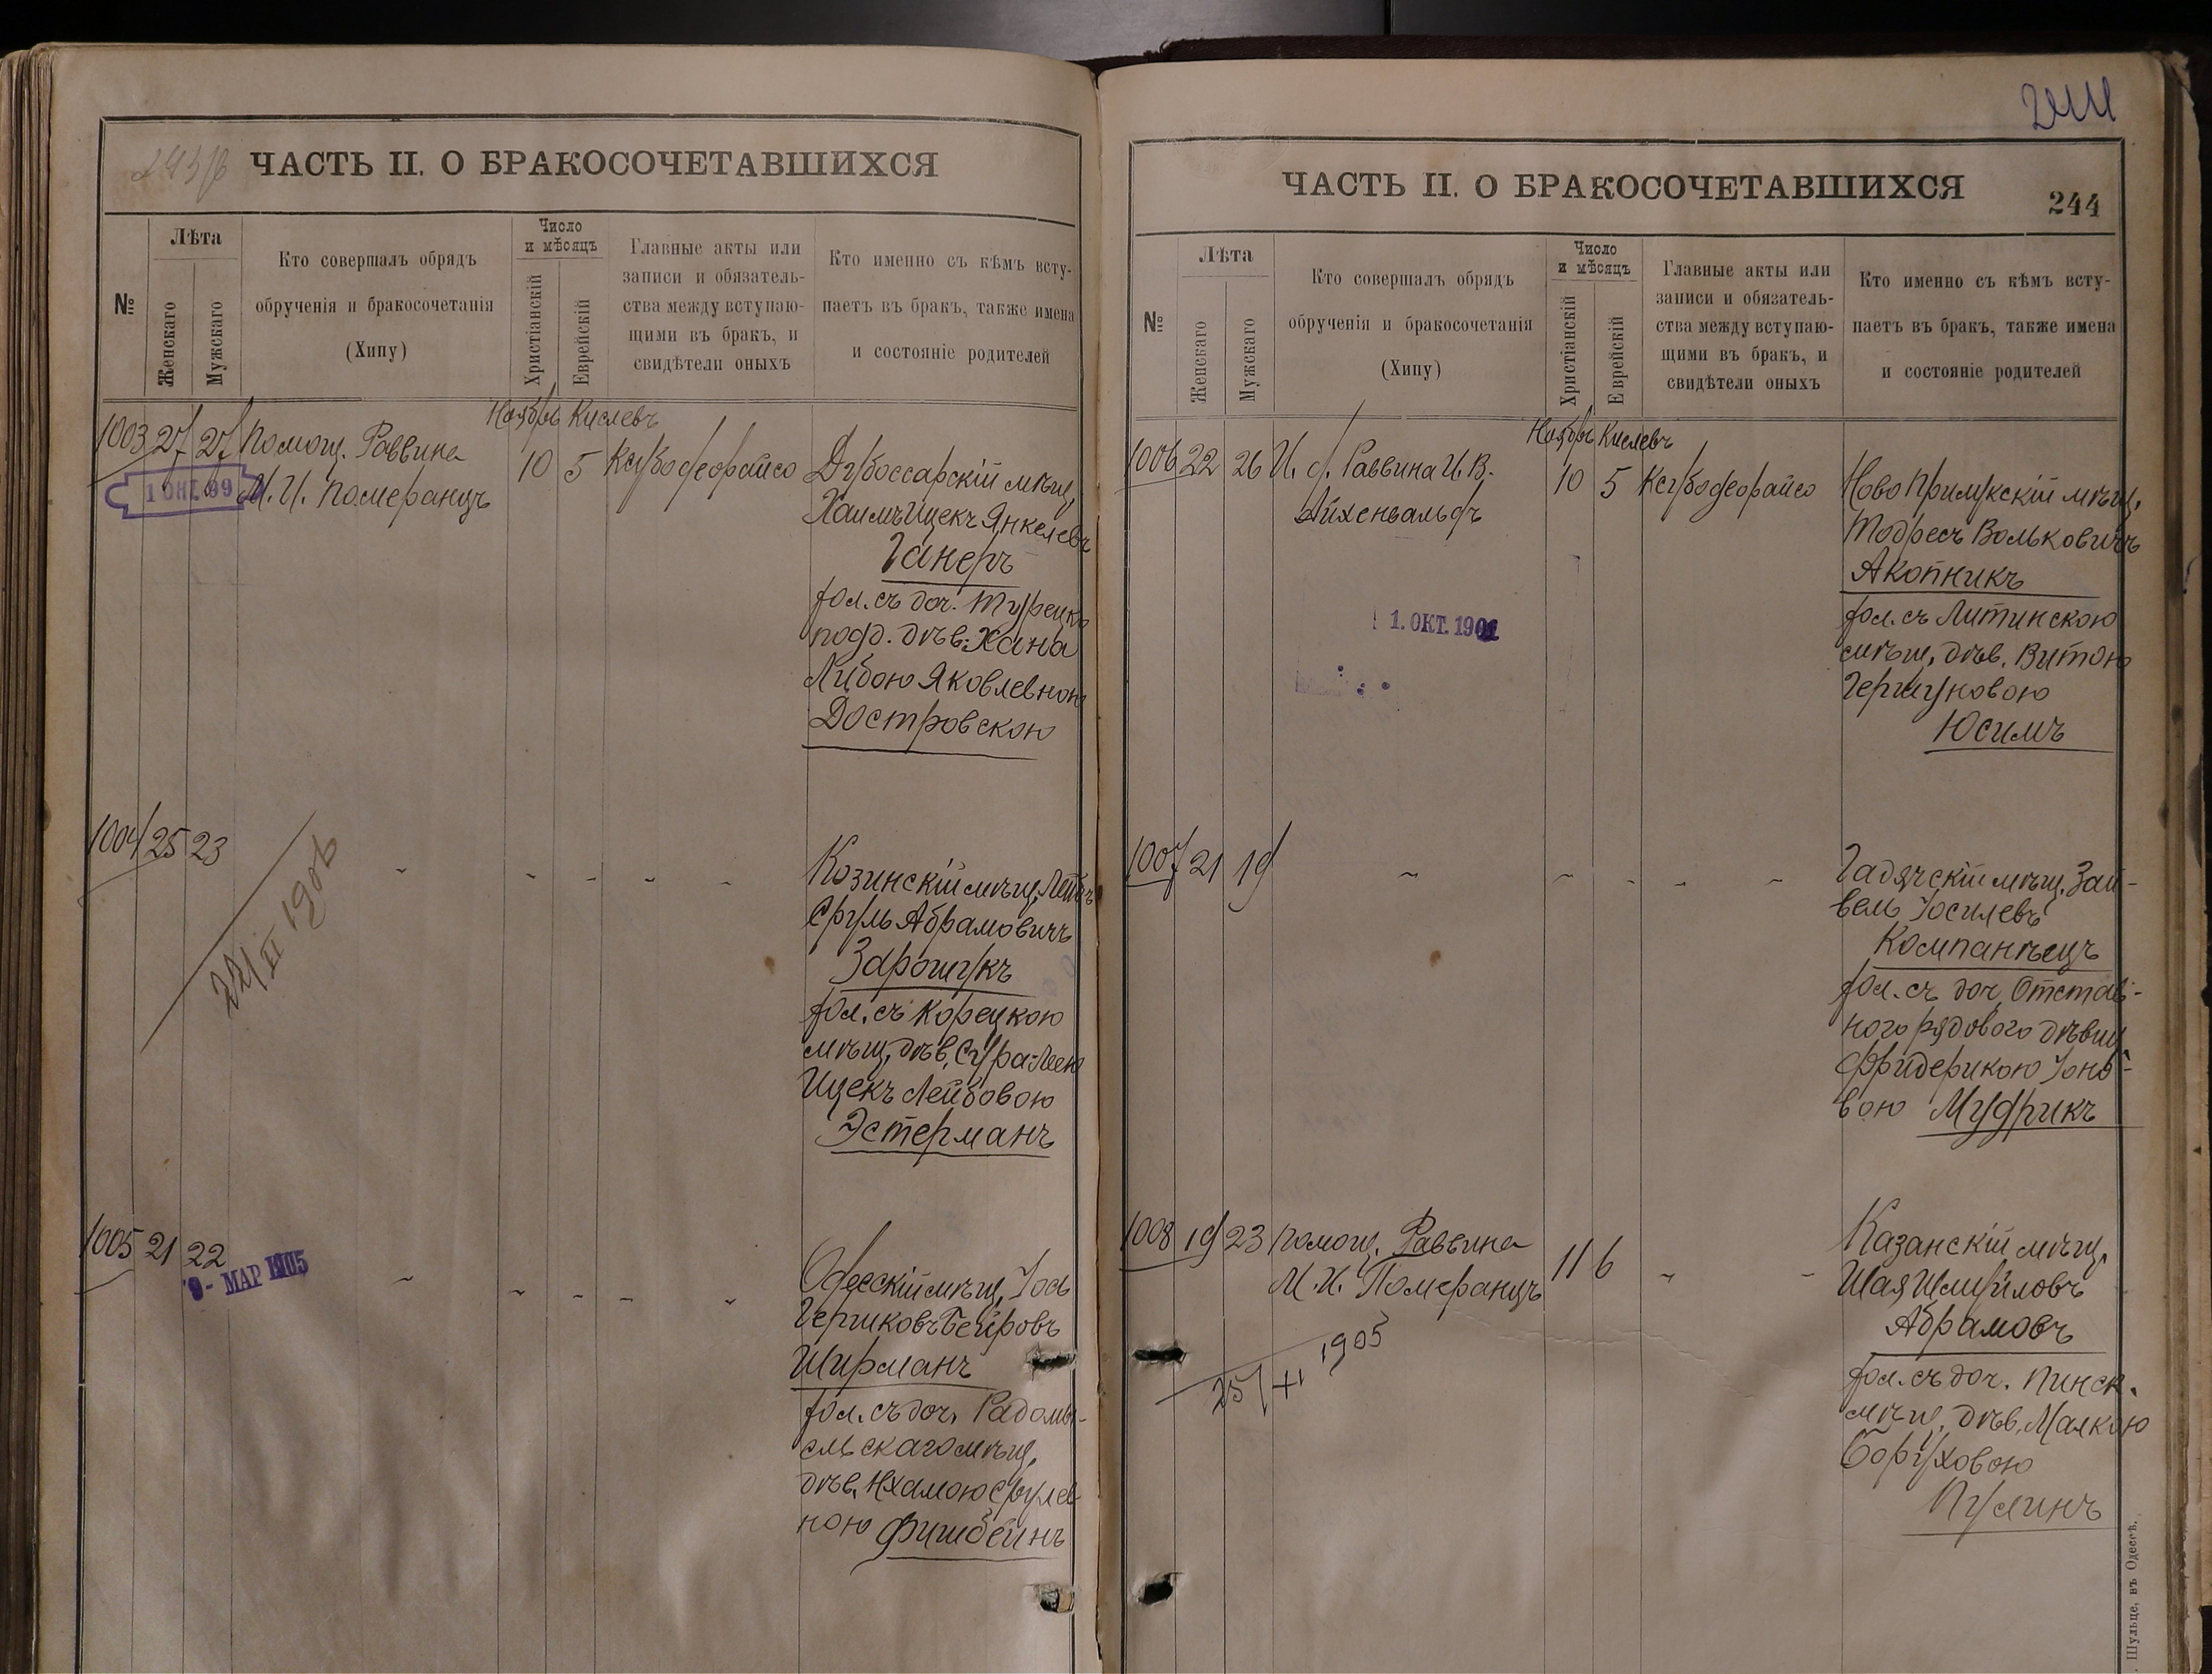 243/б ЧАСТЬ II. О БРАКОСОЧЕТАВШИХСЯ
№
Лѣта
Женскаго
Мужскаго
Кто совершалъ обрядъ
обрученія и бракосочетанія
(Хипу)
Число
и мѣсяцъ
Христіанскій
Еврейскій
Главные акты или
записи и обязатель-
ства между вступаю-
щими въ бракъ, и
свидѣтели оныхъ
Кто именно съ кѣмъ всту-
паетъ въ бракъ, также имена
и состояніе родителей
Ноябрь Кислевъ
1003 27 27 Помощ. Раввина
1 ОКТ. 99 М. И. Померанцъ
10 5 Ксубодеорайсо
Дубоссарскій мѣщ,
Хаимъ Ицекъ Янкелевъ
Ганеръ
хол. съ доч. Турецко
подд. дѣв. Хана
Либою Яковлевною
Достровскою
1004 25 23
22/II 1906
Козинскій мѣщ, Лейбъ
Сруль Абрамовичъ
Зарощукъ
хол. съ Корецкою
мѣщ, дѣв, Сура-Леею
Ицекъ Лейбовою
Эстерманъ
1005 21 22
9 - МАР 1905
Одесскій мѣщ, Іось
Гершковъ Бейровъ
Ширманъ
хол. съ доч. Радомы-
сльскаго мѣщ,
дѣв. Нхамою Срулев-
ною Фишбейнъ
244
ЧАСТЬ II. О БРАКОСОЧЕТАВШИХСЯ 244
№
Лѣта
Женскаго
Мужскаго
Кто совершалъ обрядъ
обрученія и бракосочетанія
(Хипу)
Число
и мѣсяцъ
Христіанскій
Еврейскій
Главные акты или
записи и обязатель-
ства между вступаю-
щими въ бракъ, и
свидѣтели оныхъ
Кто именно съ кѣмъ всту-
паетъ въ бракъ, также имена
и состояніе родителей
Ноябрь Кислевъ
1006 22 26 И. д. Раввина И. В.
Айхенвальдъ
10 5 Ксубодеорайсо
1. ОКТ. 1901
Ново Прилукскій мѣщ,
Тодресъ Вольковичъ
Акопникъ
хол. съ Литинскою
мѣщ, дѣв. Витою
Гершуновою
Юсимъ
1007 21 19
Гадячскій мѣщ. Зай-
вель Іосилевъ
Компанѣецъ
хол. съ доч, Отстав-
ного рядового дѣвиц
Фридерикою Іоно-
вою Мудрикъ
1008 19 23 Помощ. Раввина
М. И. Померанцъ
11 6
25/XI 1905
Казанскій мѣщ,
Шая Шмуйловъ
Абрамовъ
хол. съ доч. Пинск.
мѣщ, дѣв, Малкою
Боруховою
Пулинъ
Шульце, въ Одессѣ.